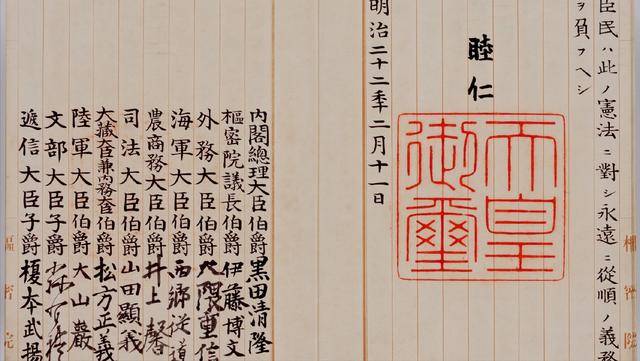 臣民ハ此ノ憲法ニ對シ永遠ニ從順ノ義務
ヲ負フヘシ
睦仁
天皇
御璽
明治二十二年二月十一日
內閣總理大臣伯爵黑田清隆
樞密院議長伯爵伊藤博文
外務大臣伯爵大隈重信
海軍大臣伯爵西鄉從道
農商務大臣伯爵井上馨
司法大臣伯爵山田顯義
大藏大臣兼內務大臣伯爵松方正義
陸軍大臣伯爵大山巖
文部大臣子爵森有禮
遞信大臣子爵榎本武揚